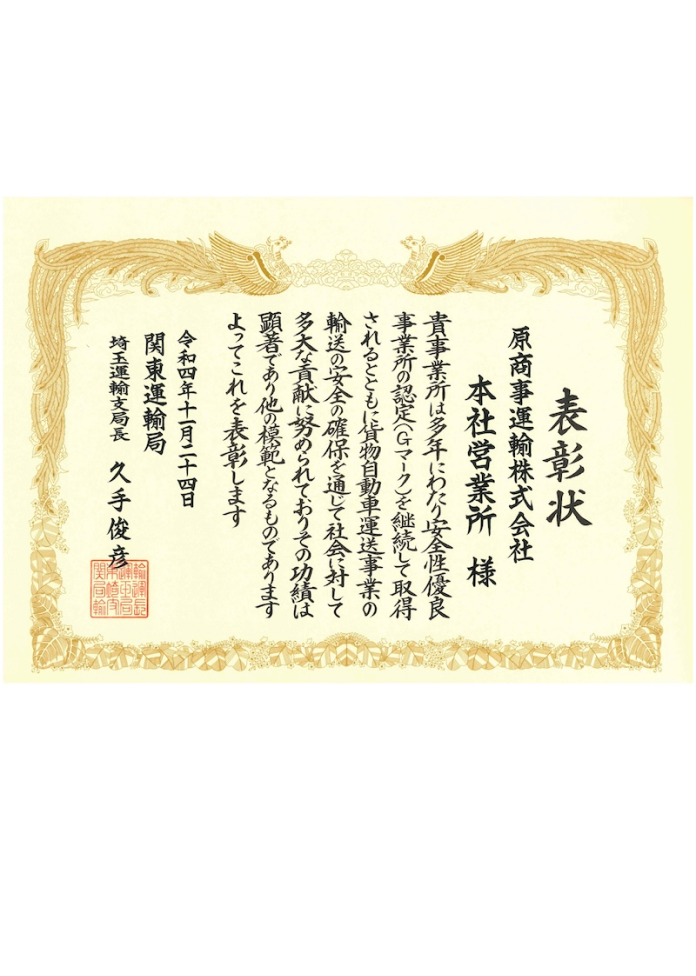 表彰状
原商事運輸株式会社
本社営業所 様
貴事業所は多年にわたり安全性優良
事業所の認定(Gマーク)を継続して取得
されるとともに貨物自動車運送事業の
輸送の安全の確保を通じて社会に対して
多大な貢献に努められておりその功績は
顕著であり他の模範となるものであります
よってこれを表彰します
令和四年十一月二十四日
関東運輸局
埼玉運輸支局長 久手俊彦